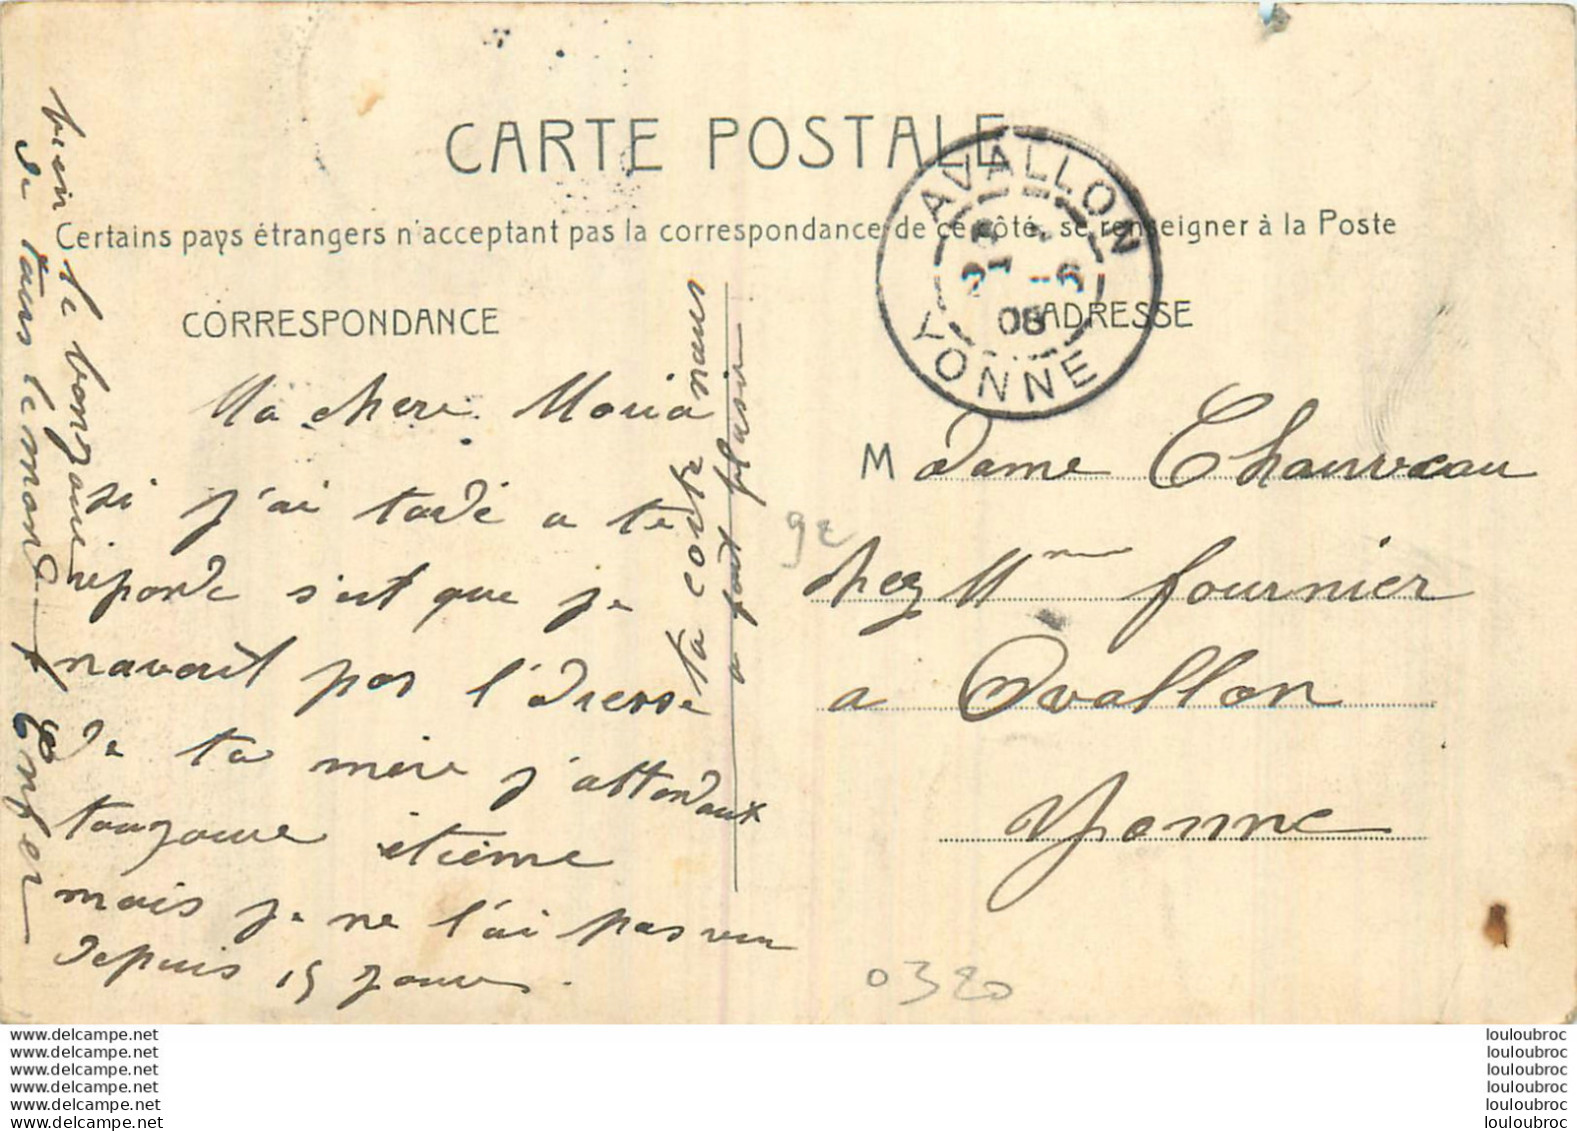 CARTE POSTALE
Certains pays étrangers n'acceptant pas la correspondance de ce côté, se renseigner à la Poste
CORRESPONDANCE
ADRESSE
AVALLON
YONNE
08
Ma chere Maria
si j'ai tardé a te
reponde s'est que je
navait pas l'adresse
de ta mère j'attendaux
toujours etieme
mais je ne l'ai pas vu
depuis 15 jours.
ta carte nous
a fait plasir
bien le bonjour
de tous le monde
Enfer
Madame Chauveau
chez Mme fournier
a Avallon
Yonne
92
0320
www.delcampe.net
www.delcampe.net
www.delcampe.net
www.delcampe.net
www.delcampe.net
www.delcampe.net
louloubroc
louloubroc
louloubroc
louloubroc
louloubroc
louloubroc